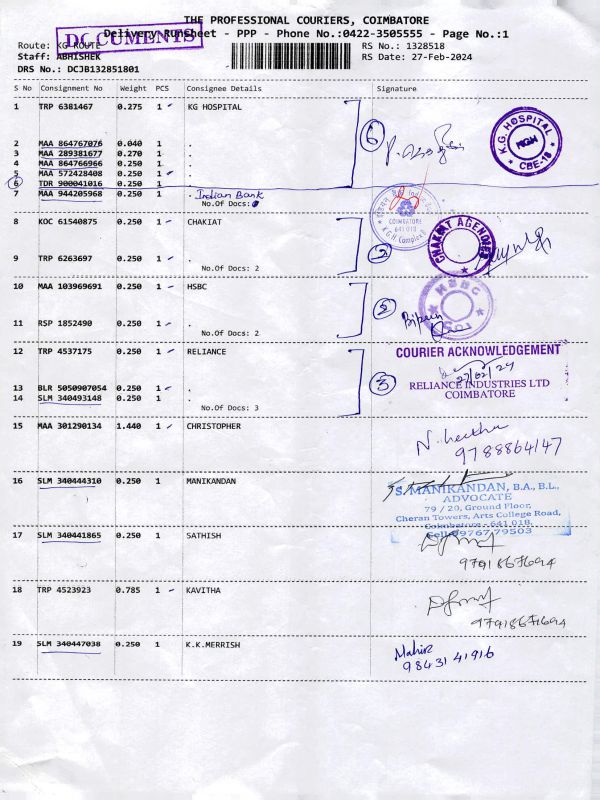 THE PROFESSIONAL COURIERS, COIMBATORE
DOCUMENTS
Delivery RunSheet - PPP - Phone No.:0422-3505555 - Page No.:1
Route: KG ROUTE
RS No.: 1328518
Staff: ABHISHEK
RS Date: 27-Feb-2024
DRS No.: DCJB132851801
S No Consignment No Weight PCS Consignee Details Signature
1 TRP 6381467 0.275 1 KG HOSPITAL
6
K.G. HOSPITAL
KGH
CBE-18
2 MAA 864767076 0.040 1 .
3 MAA 289381677 0.270 1 .
4 MAA 864766966 0.250 1 .
5 MAA 572428408 0.250 1 .
6 TDR 900041016 0.250 1 .
7 MAA 944205968 0.250 1 . Indian Bank
No.Of Docs:
COIMBATORE
641 018
K.G.H. Complex
8 KOC 61540875 0.250 1 CHAKIAT
2
CHAKIAT AGENCIES
9 TRP 6263697 0.250 1 .
No.Of Docs: 2
10 MAA 103969691 0.250 1 HSBC
2
HSBC
Bipin
11 RSP 1852490 0.250 1 .
No.Of Docs: 2
12 TRP 4537175 0.250 1 RELIANCE
3
COURIER ACKNOWLEDGEMENT
27/02/24
RELIANCE INDUSTRIES LTD
COIMBATORE
13 BLR 5050907054 0.250 1 .
14 SLM 340493148 0.250 1 .
No.Of Docs: 3
15 MAA 301290134 1.440 1 CHRISTOPHER
9788864147
16 SLM 340444310 0.250 1 MANIKANDAN
S. MANIKANDAN, B.A., B.L.,
ADVOCATE
79 / 20, Ground Floor,
Cheran Towers, Arts College Road,
Coimbatore - 641 018.
Cell: 09767 79503
17 SLM 340441865 0.250 1 SATHISH
9791867694
18 TRP 4523923 0.785 1 KAVITHA
9791867694
19 SLM 340447038 0.250 1 K.K.MERRISH
98431 41916